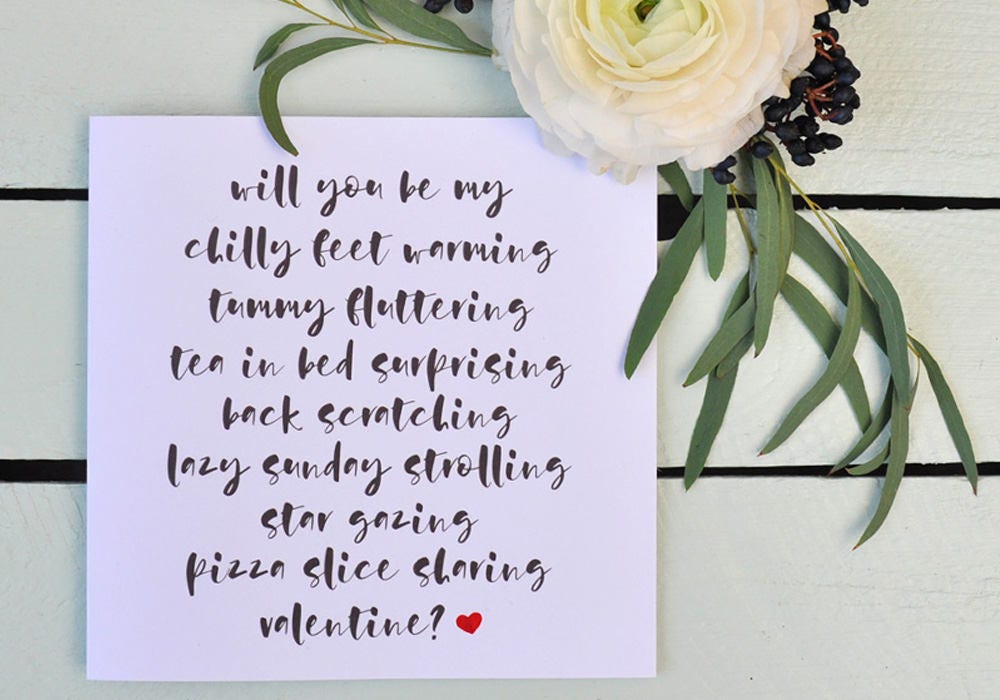 will you be my
chilly feet warming
tummy fluttering
tea in bed surprising
back scratching
lazy sunday strolling
star gazing
pizza slice sharing
valentine?